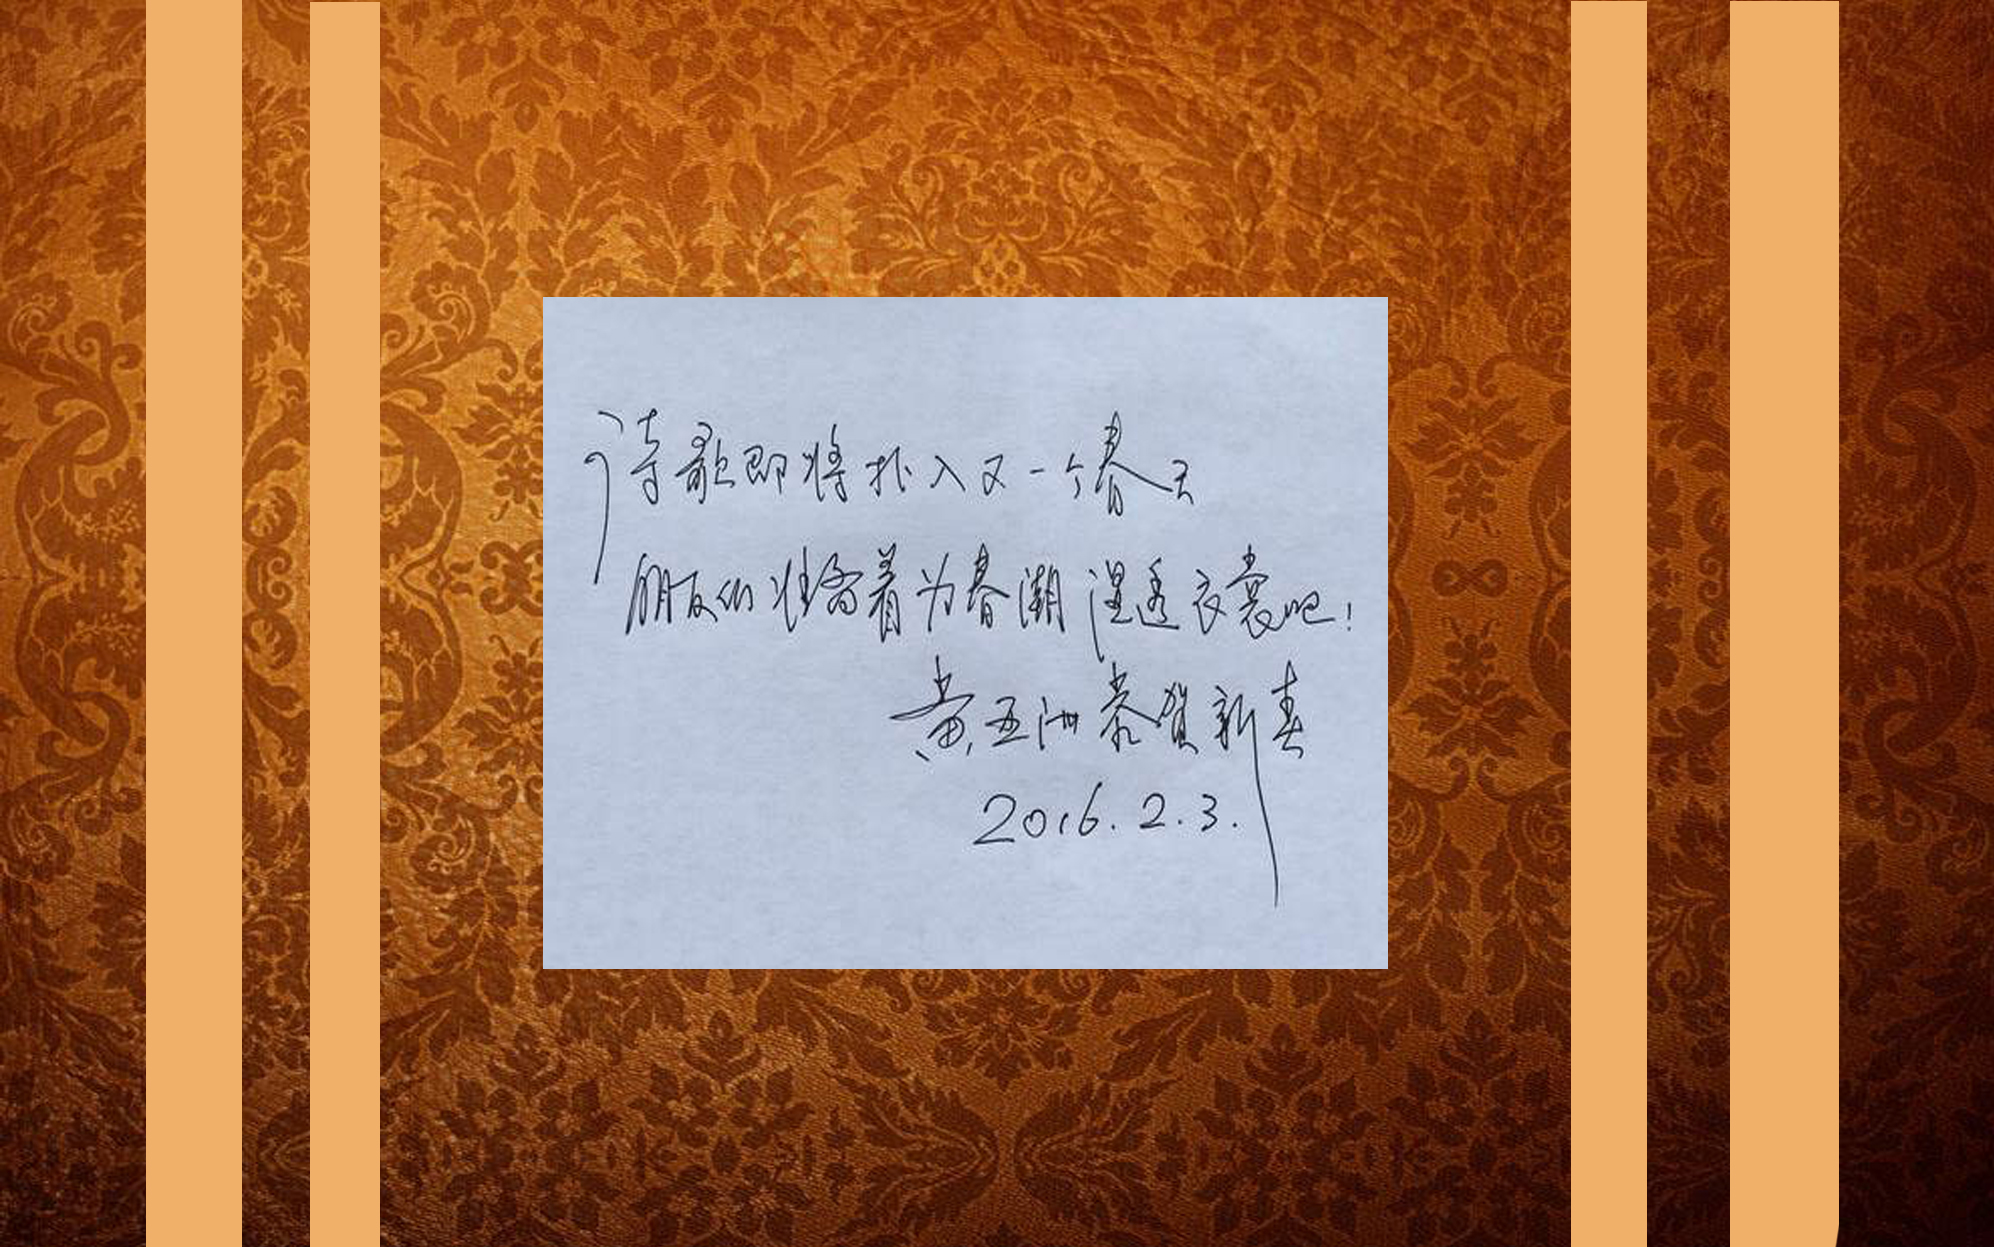 诗歌即将扑入又一个春天
朋友们准备着为春潮湿透衣裳吧!
黄亚洲恭贺新春
2016.2.3.